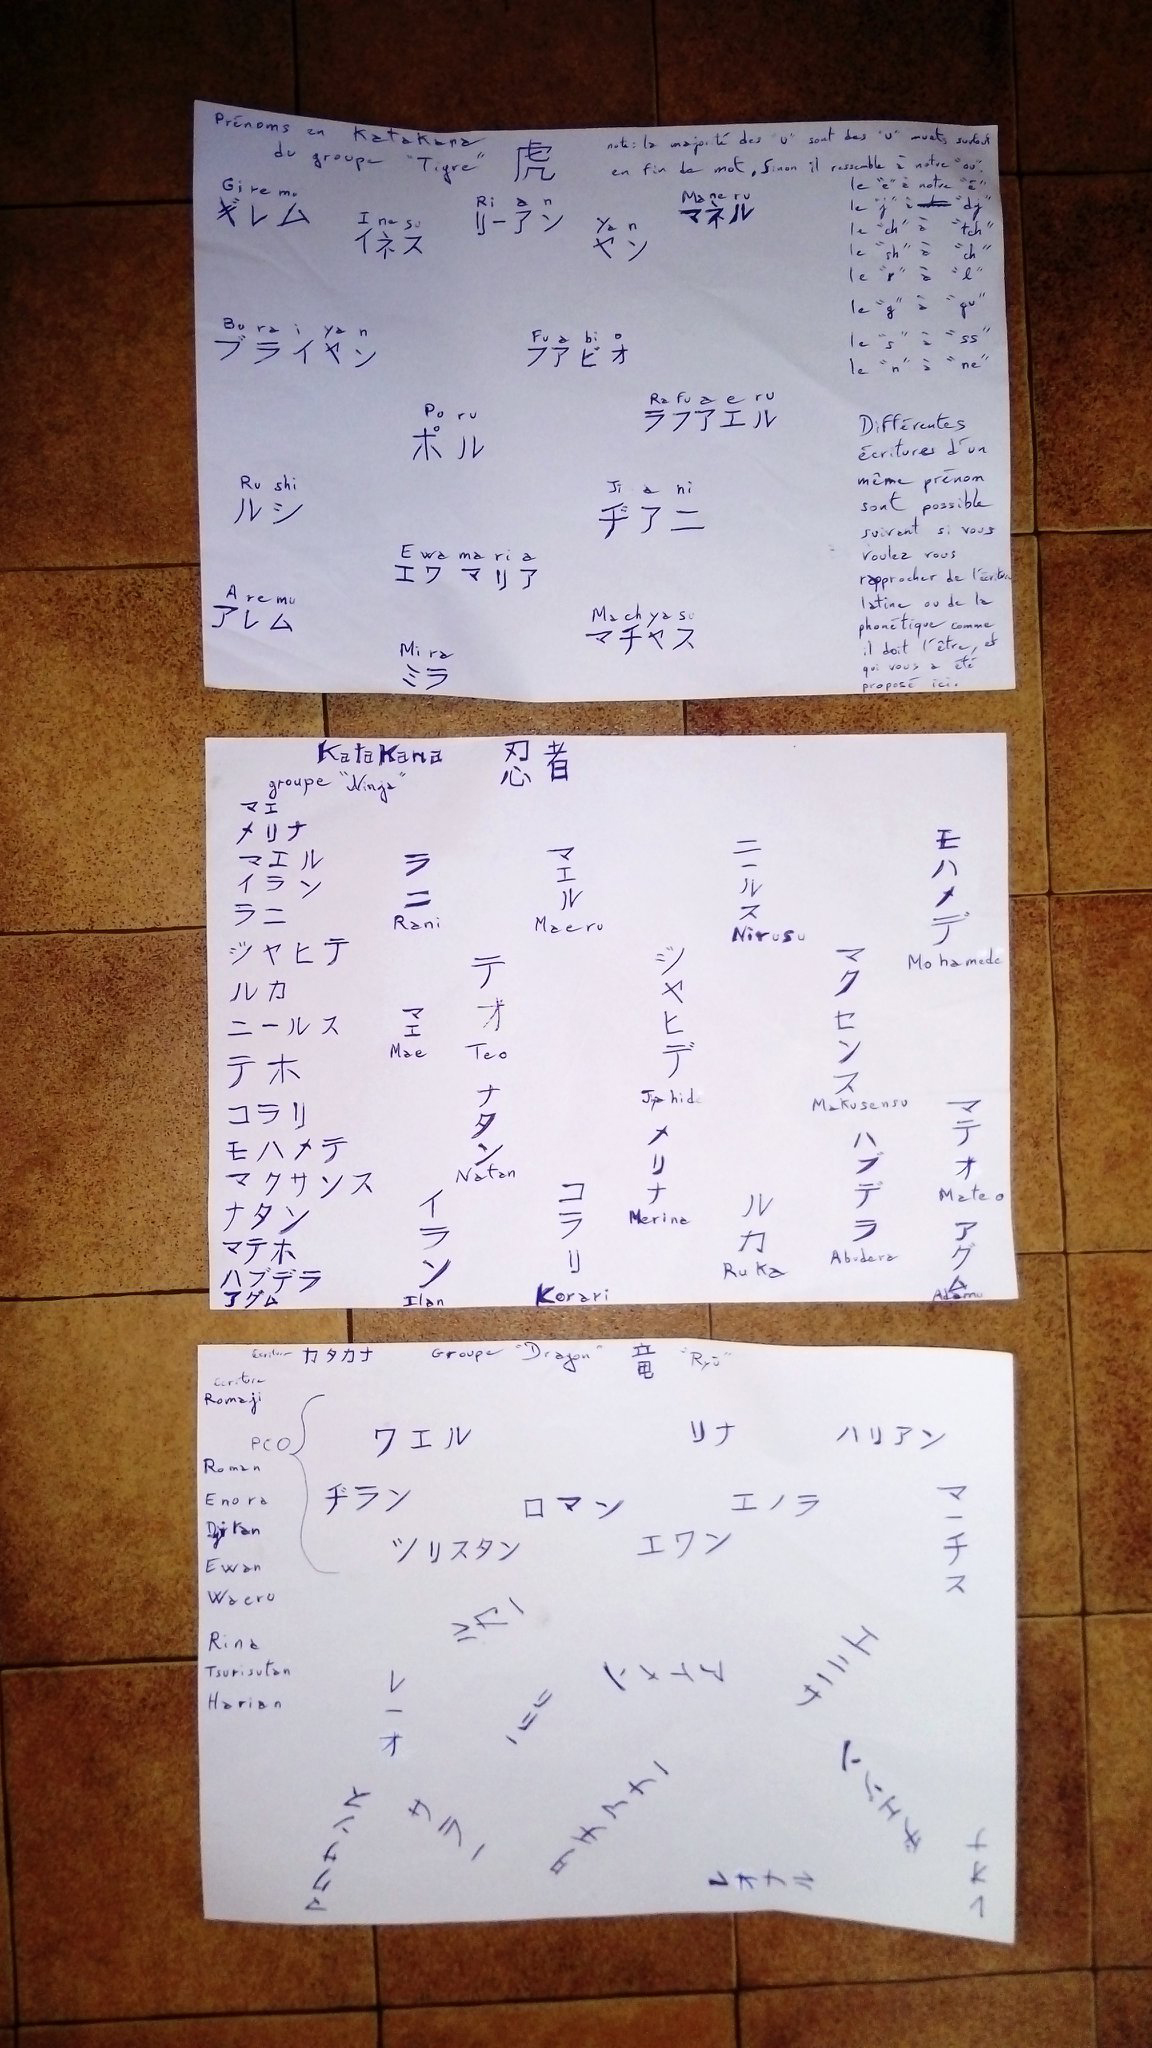 Prénoms en Katakana
du groupe "Tigre" 虎
note: la majorité des "u" sont des "u" muets surtout
en fin de mot, sinon il ressemble à notre "ou".
le "e" à notre "é"
le "j" à "dj"
le "ch" à "tch"
le "sh" à "ch"
le "r" à "l"
le "g" à "gu"
le "s" à "ss"
le "n" à "ne"
Giremu
ギレム
Inesu
イネス
Ri a n
リーアン
Yan
ヤン
Maneru
マネル
Bu ra i ya n
ブライヤン
Fu a bi o
フアビオ
Po ru
ポル
Ra fu a e ru
ラフアエル
Ru shi
ルシ
Ji a ni
ヂアニ
E wa ma ri a
エワ マリア
A re mu
アレム
Ma ch ya su
マチヤス
Mi ra
ミラ
Différentes
écritures d'un
même prénom
sont possible
suivant si vous
voulez vous
rapprocher de l'écriture
latine ou de la
phonétique comme
il doit l'être, et
qui vous a été
proposé ici.
Katakana 忍者
groupe "Ninja"
マエ
メリナ
マエル
イラン
ラニ
ジヤヒテ
ルカ
ニールス
テホ
コラリ
モハメテ
マクサンス
ナタン
マテホ
ハブデラ
アグム
ラニ
Rani
マエル
Maeru
ニールス
Nirusu
モハメデ
Mohamede
マエ
Mae
テオ
Teo
ジヤヒデ
Jahide
マクセンス
Makusensu
ナタン
Natan
メリナ
Merina
マテオ
Mateo
イラン
Ilan
コラリ
Korari
ルカ
Ruka
ハブデラ
Abudera
アグム
Adamu
Ecriture カタカナ Groupe "Dragon" 竜 "Ryū"
écriture
Romaji
PCO
Roman
Enora
Ewan
Waeru
Rina
Tsurisutan
Harian
ワエル
リナ
ハリアン
ヂラン
ロマン
エノラ
マーチス
ツリスタン
エワン
レーオ
マクサンス
サラー